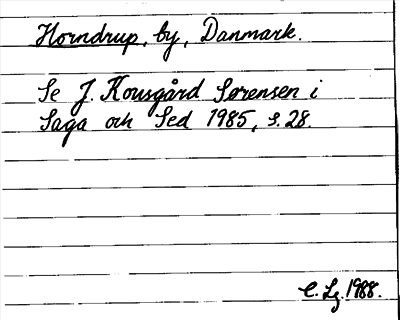 Horndrup, by, Danmark.
Se J. Kousgård Sørensen i
Saga och Sed 1985, s. 28.
C. Lg. 1988.